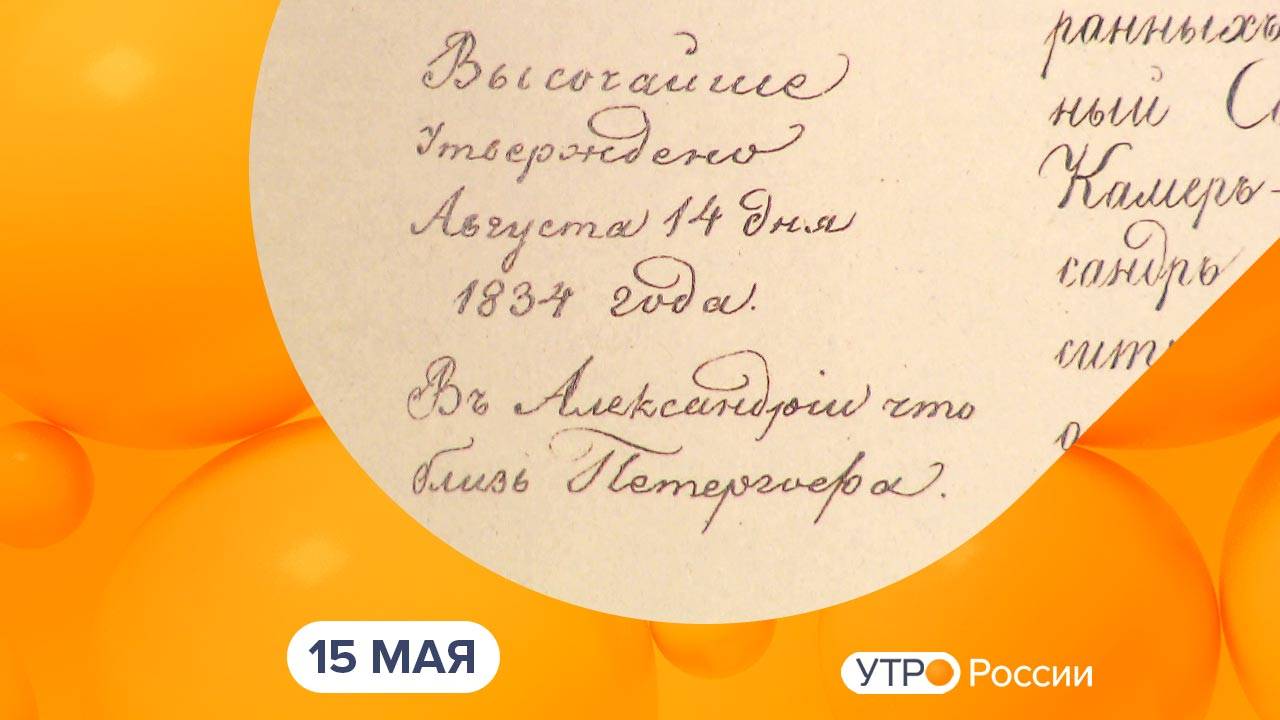 Высочайше
Утверждено
Августа 14 дня
1834 года.
Въ Александріи что
близь Петергофа.
ранныхъ
ный
Камеръ-
сандръ
сит
о
15 МАЯ
УТРО России